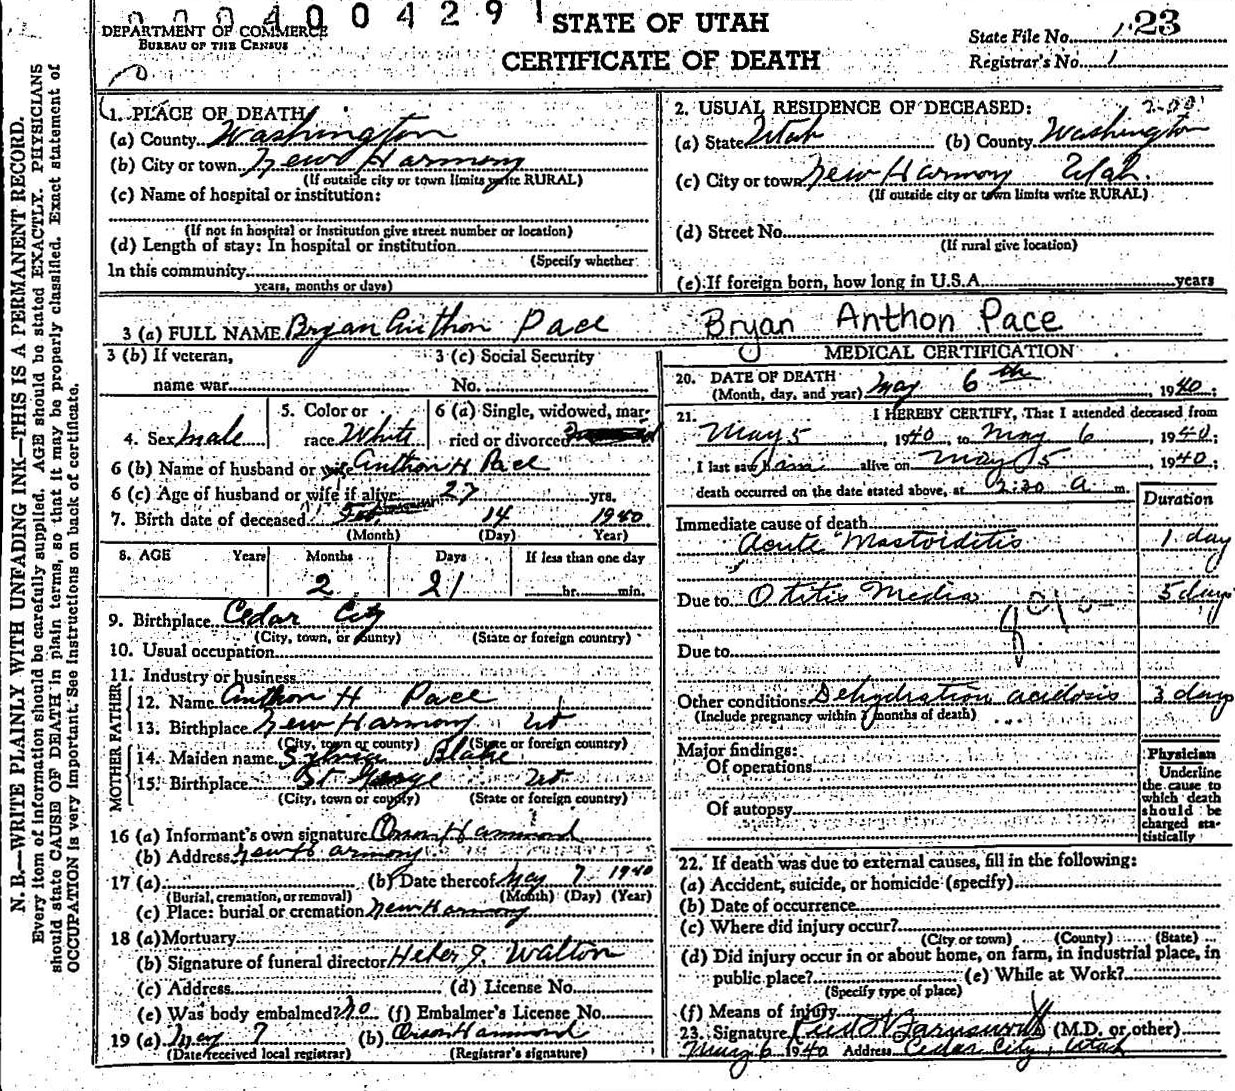 000400429
DEPARTMENT OF COMMERCE
BUREAU OF THE CENSUS
STATE OF UTAH
CERTIFICATE OF DEATH
State File No. 23
Registrar's No. 1
N. B.—WRITE PLAINLY WITH UNFADING INK—THIS IS A PERMANENT RECORD.
Every item of information should be carefully supplied. AGE should be stated EXACTLY. PHYSICIANS
should state CAUSE OF DEATH in plain terms, so that it may be properly classified. Exact statement of
OCCUPATION is very important. See instructions on back of certificate.
1. PLACE OF DEATH
(a) County Washington
(b) City or town New Harmony
(If outside city or town limits write RURAL)
(c) Name of hospital or institution:
(If not in hospital or institution give street number or location)
(d) Length of stay: In hospital or institution
(Specify whether
In this community
years, months or days)
2. USUAL RESIDENCE OF DECEASED:
(a) State Utah (b) County Washington
(c) City or town New Harmony Utah.
(If outside city or town limits write RURAL)
(d) Street No.
(If rural give location)
(e) If foreign born, how long in U.S.A. years
3 (a) FULL NAME Bryan Anthon Pace Bryan Anthon Pace
3 (b) If veteran, 3 (c) Social Security
name war No.
4. Sex Male 5. Color or race White 6 (a) Single, widowed, married or divorced
6 (b) Name of husband or wife Anthon H Pace
6 (c) Age of husband or wife if alive 27 yrs.
7. Birth date of deceased Feb. 14 1940
(Month) (Day) Year)
8. AGE Years Months Days If less than one day
2 21 hr. min.
9. Birthplace Cedar City
(City, town, or county) (State or foreign country)
10. Usual occupation
11. Industry or business
FATHER
12. Name Anthon H Pace
13. Birthplace New Harmony Ut
(City, town or county) (State or foreign country)
MOTHER
14. Maiden name Sylvia Blake
15. Birthplace St George Ut
(City, town or county) (State or foreign country)
16 (a) Informant's own signature Orson Hammond
(b) Address New Harmony
17 (a) (b) Date thereof May 7 1940
(Burial, cremation, or removal) (Month) (Day) (Year)
(c) Place: burial or cremation New Harmony
18 (a) Mortuary
(b) Signature of funeral director Heber J. Walton
(c) Address (d) License No.
(e) Was body embalmed? No (f) Embalmer's License No.
19 (a) May 7 (b) Orson Hammond
(Date received local registrar) (Registrar's signature)
MEDICAL CERTIFICATION
20. DATE OF DEATH
(Month, day, and year) May 6th 1940;
21. I HEREBY CERTIFY, That I attended deceased from
May 5, 1940, to May 6, 1940;
I last saw him alive on May 5, 1940;
death occurred on the date stated above, at 2:30 A m.
Duration
Immediate cause of death
Acute Mastoiditis 1 day
Due to Otitis Media 5 days
Due to
Other conditions Dehydration acidosis 3 days
(Include pregnancy within 3 months of death)
Major findings:
Of operations
Of autopsy
Physician
Underline
the cause to
which death
should be
charged sta-
tistically
22. If death was due to external causes, fill in the following:
(a) Accident, suicide, or homicide (specify)
(b) Date of occurrence
(c) Where did injury occur?
(City or town) (County) (State)
(d) Did injury occur in or about home, on farm, in industrial place, in
public place? (e) While at Work?
(Specify type of place)
(f) Means of injury
23. Signature Farnsworth (M.D. or other)
May 6 1940 Address Cedar City, Utah